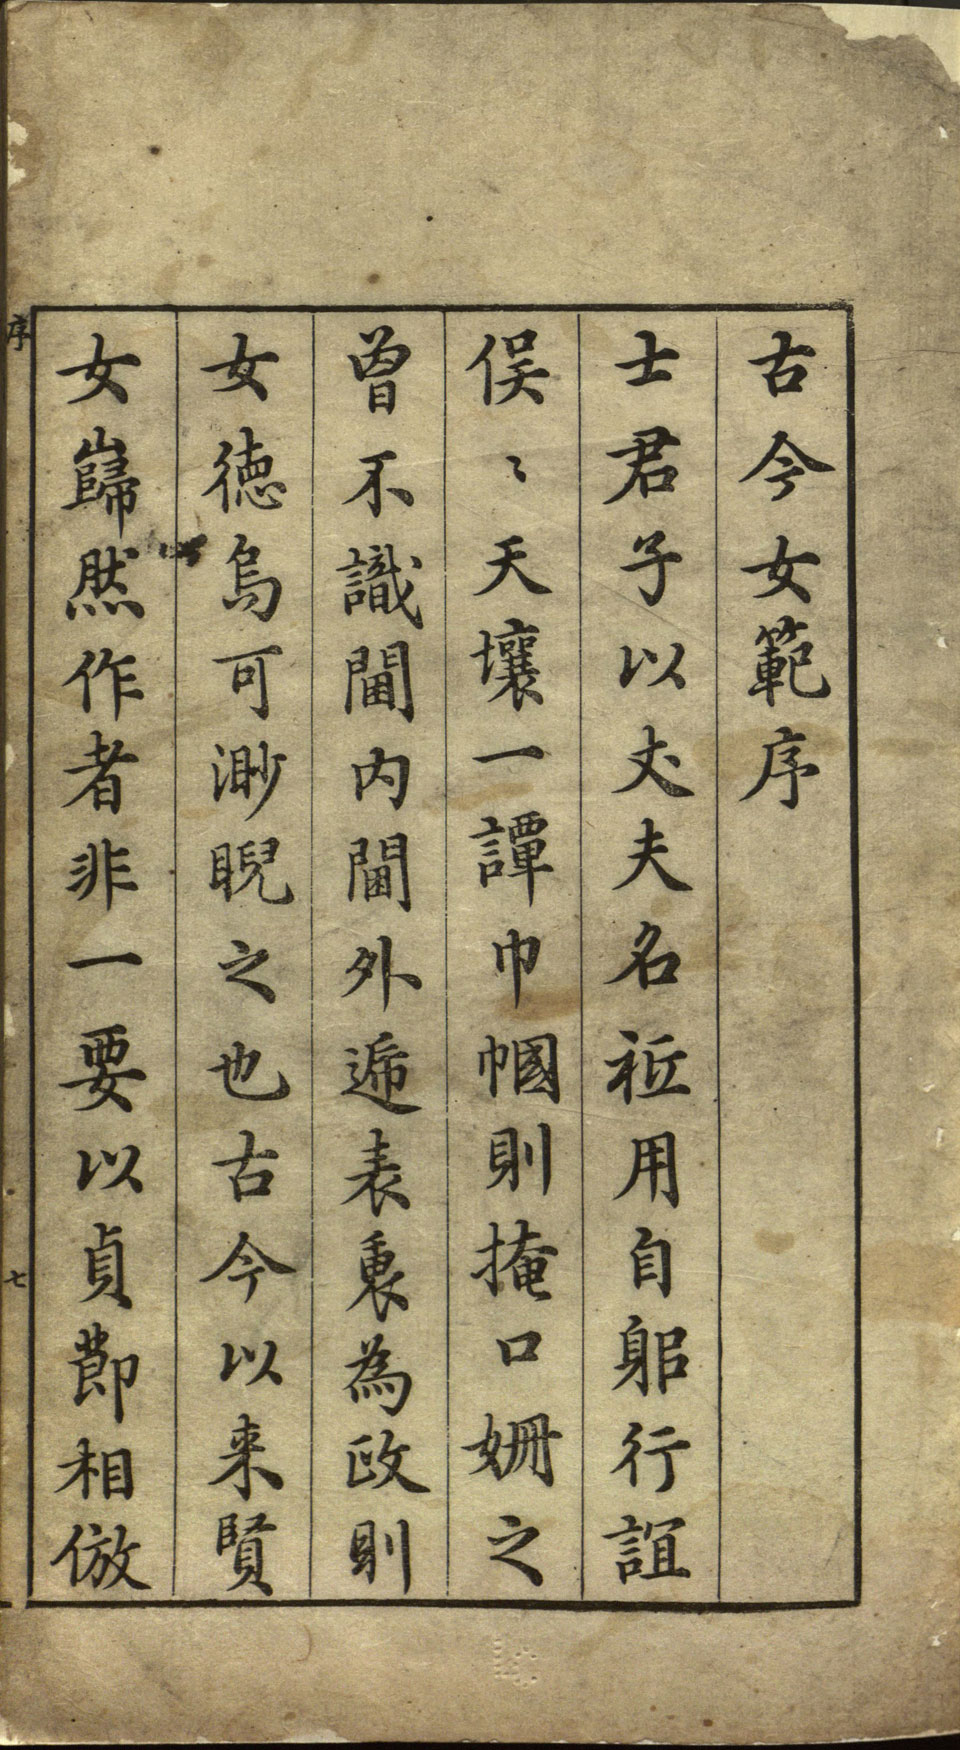 古今女範序
士君子以丈夫名衹用自躳行誼
俣〻天壤一譚巾幗則掩口姍之
曾不識閫内閫外遞表裏為政則
女徳烏可渺睨之也古今以来賢
女巋然作者非一要以貞節相倣
序
七